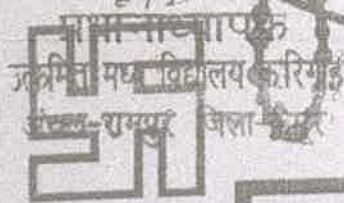 प्रधानाध्यापक
उत्क्रमित मध्य विद्यालय करिगाई
अंचल-रामपुर जिला-कैमूर